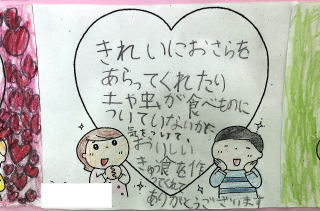 きれいにおさらを
あらってくれたり
土や虫が食べものに
ついていないかた
気をつけて
おいしい
きゅう食を作
ってくれて
ありがとうございます